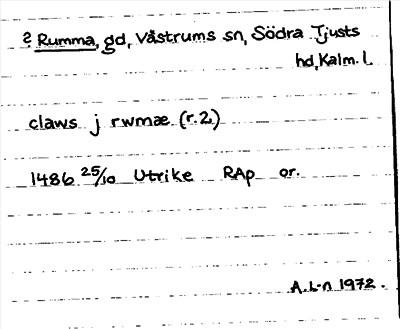 ? Rumma, gd, Våstrums sn, Södra Tjusts
hd, Kalm. l.
claws j rwmæ (r.2)
1486 25/10 Utrike RAp or.
A. L-n 1972.